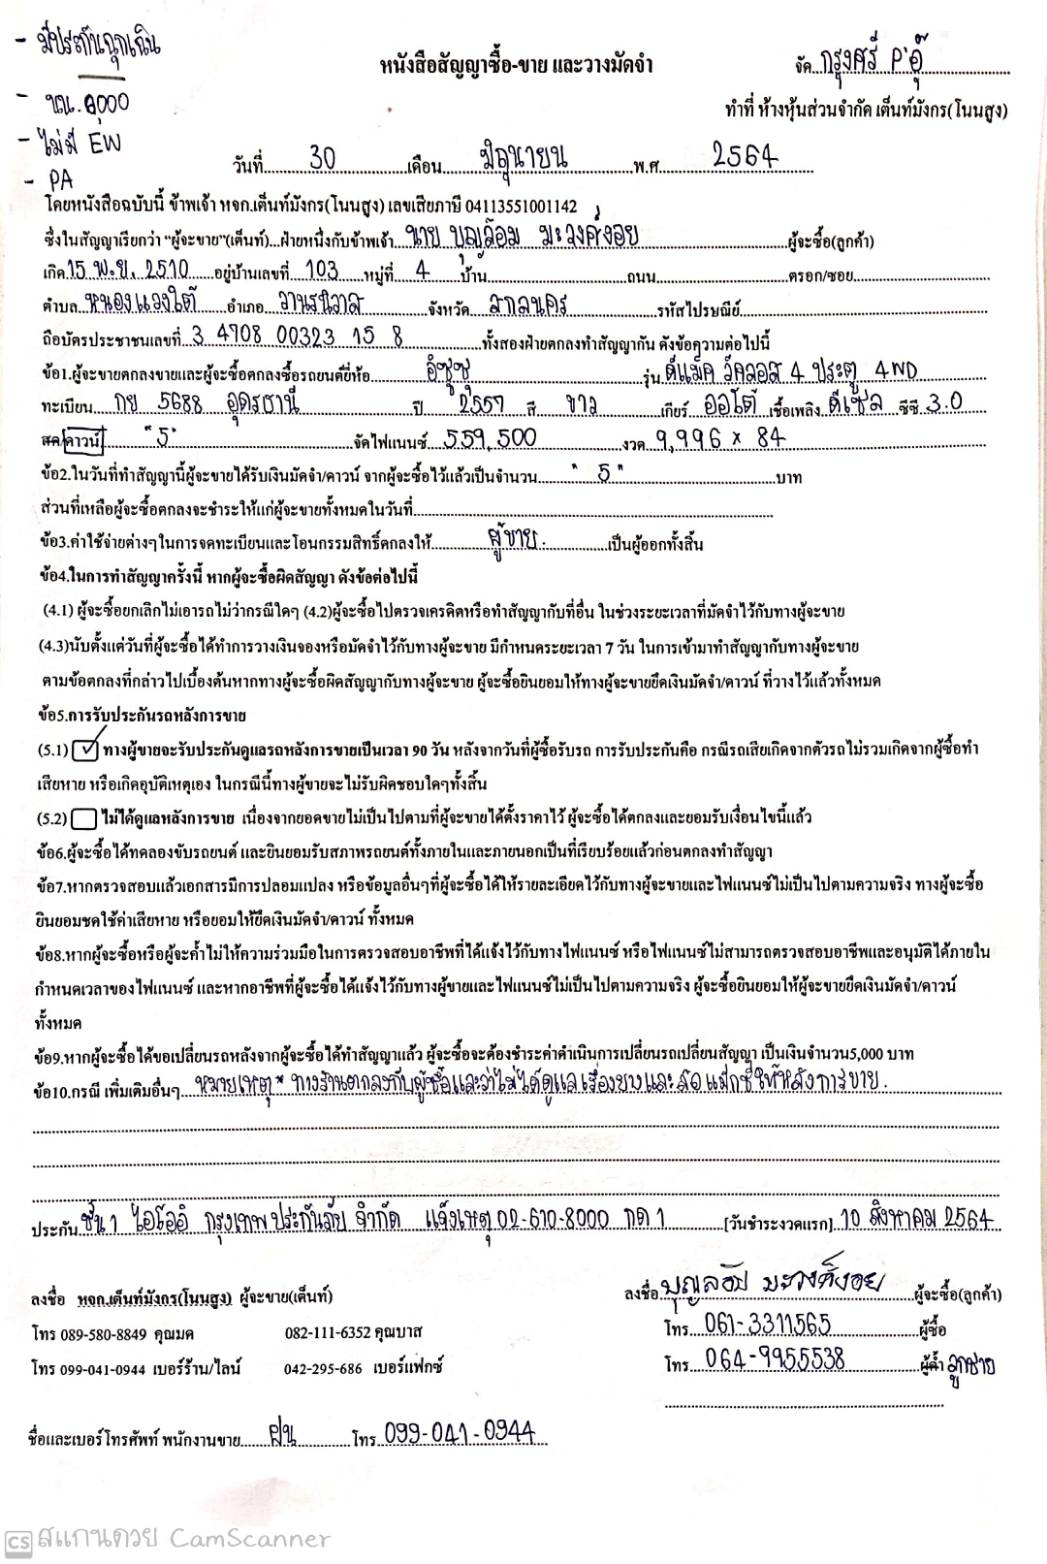 - มีประกันฉุกเฉิน
หนังสือสัญญาซื้อ-ขาย และวางมัดจำ
จัด กรุงศรี P'อุ๊
- นน. 6000
ทำที่ ห้างหุ้นส่วนจำกัด เต็นท์มังกร(โนนสูง)
- ไม่มี EW
วันที่ 30 เดือน มิถุนายน พ.ศ. 2564
- PA
โดยหนังสือฉบับนี้ ข้าพเจ้า หจก.เต็นท์มังกร(โนนสูง) เลขเสียภาษี 04113551001142
ซึ่งในสัญญาเรียกว่า "ผู้จะขาย"(เต็นท์)...ฝ่ายหนึ่งกับข้าพเจ้า นาย บุญล้อม มะวงศ์งอย ผู้จะซื้อ(ลูกค้า)
เกิด 15 พ.ย. 2510 อยู่บ้านเลขที่ 103 หมู่ที่ 4 บ้าน ถนน ตรอก/ซอย
ตำบล หนองแวงใต้ อำเภอ วานรนิวาส จังหวัด สกลนคร รหัสไปรษณีย์
ถือบัตรประชาชนเลขที่ 3 4708 00323 15 8 ทั้งสองฝ่ายตกลงทำสัญญากัน ดังข้อความต่อไปนี้
ข้อ1.ผู้จะขายตกลงขายและผู้จะซื้อตกลงซื้อรถยนต์ยี่ห้อ อีซูซุ รุ่น ดีแม็ค วีครอส 4 ประตู 4WD
ทะเบียน กย 5688 อุดรธานี ปี 2557 สี ขาว เกียร์ ออโต้ เชื้อเพลิง ดีเซล ซีซี 3.0
สด/ดาวน์ "5" จัดไฟแนนซ์ 559,500 งวด 9,996 x 84
ข้อ2.ในวันที่ทำสัญญานี้ผู้จะขายได้รับเงินมัดจำ/ดาวน์ จากผู้จะซื้อไว้แล้วเป็นจำนวน "5" บาท
ส่วนที่เหลือผู้จะซื้อตกลงจะชำระให้แก่ผู้จะขายทั้งหมดในวันที่
ข้อ3.ค่าใช้จ่ายต่างๆในการจดทะเบียนและโอนกรรมสิทธิ์ตกลงให้ ผู้ขาย. เป็นผู้ออกทั้งสิ้น
ข้อ4.ในการทำสัญญาครั้งนี้ หากผู้จะซื้อผิดสัญญา ดังข้อต่อไปนี้
(4.1) ผู้จะซื้อยกเลิกไม่เอารถไม่ว่ากรณีใดๆ (4.2)ผู้จะซื้อไปตรวจเครดิตหรือทำสัญญากับที่อื่น ในช่วงระยะเวลาที่มัดจำไว้กับทางผู้จะขาย
(4.3)นับตั้งแต่วันที่ผู้จะซื้อได้ทำการวางเงินจองหรือมัดจำไว้กับทางผู้จะขาย มีกำหนดระยะเวลา 7 วัน ในการเข้ามาทำสัญญากับทางผู้จะขาย
ตามข้อตกลงที่กล่าวไปเบื้องต้นหากทางผู้จะซื้อผิดสัญญากับทางผู้จะขาย ผู้จะซื้อยินยอมให้ทางผู้จะขายยึดเงินมัดจำ/ดาวน์ ที่วางไว้แล้วทั้งหมด
ข้อ5.การรับประกันรถหลังการขาย
(5.1) ✓ ทางผู้ขายจะรับประกันดูแลรถหลังการขายเป็นเวลา 90 วัน หลังจากวันที่ผู้ซื้อรับรถ การรับประกันคือ กรณีรถเสียเกิดจากตัวรถไม่รวมเกิดจากผู้ซื้อทำ
เสียหาย หรือเกิดอุบัติเหตุเอง ในกรณีนี้ทางผู้ขายจะไม่รับผิดชอบใดๆทั้งสิ้น
(5.2) ไม่ได้ดูแลหลังการขาย เนื่องจากยอดขายไม่เป็นไปตามที่ผู้จะขายได้ตั้งราคาไว้ ผู้จะซื้อได้ตกลงและยอมรับเงื่อนไขนี้แล้ว
ข้อ6.ผู้จะซื้อได้ทดลองขับรถยนต์ และยินยอมรับสภาพรถยนต์ทั้งภายในและภายนอกเป็นที่เรียบร้อยแล้วก่อนตกลงทำสัญญา
ข้อ7.หากตรวจสอบแล้วเอกสารมีการปลอมแปลง หรือข้อมูลอื่นๆที่ผู้จะซื้อได้ให้รายละเอียดไว้กับทางผู้จะขายและไฟแนนซ์ไม่เป็นไปตามความจริง ทางผู้จะซื้อ
ยินยอมชดใช้ค่าเสียหาย หรือยอมให้ยึดเงินมัดจำ/ดาวน์ ทั้งหมด
ข้อ8.หากผู้จะซื้อหรือผู้จะค้ำไม่ให้ความร่วมมือในการตรวจสอบอาชีพที่ได้แจ้งไว้กับทางไฟแนนซ์ หรือไฟแนนซ์ไม่สามารถตรวจสอบอาชีพและอนุมัติได้ภายใน
กำหนดเวลาของไฟแนนซ์ และหากอาชีพที่ผู้จะซื้อได้แจ้งไว้กับทางผู้ขายและไฟแนนซ์ไม่เป็นไปตามความจริง ผู้จะซื้อยินยอมให้ผู้จะขายยึดเงินมัดจำ/ดาวน์
ทั้งหมด
ข้อ9.หากผู้จะซื้อได้ขอเปลี่ยนรถหลังจากผู้จะซื้อได้ทำสัญญาแล้ว ผู้จะซื้อจะต้องชำระค่าดำเนินการเปลี่ยนรถเปลี่ยนสัญญา เป็นเงินจำนวน5,000 บาท
ข้อ10.กรณี เพิ่มเติมอื่นๆ หมายเหตุ* ทางร้านตกลงกับผู้ซื้อแล้วว่าไม่ได้ดูแล เรื่องยางและล้อ แม็กซ์ให้หลังการขาย.
ประกัน ชั้น 1 ไอโออิ กรุงเทพ ประกันภัย จำกัด แจ้งเหตุ 02-610-8000 กด 1 [วันชำระงวดแรก] 10 สิงหาคม 2564
ลงชื่อ หจก.เต็นท์มังกร(โนนสูง) ผู้จะขาย(เต็นท์)
ลงชื่อ บุญล้อม มะวงศ์งอย ผู้จะซื้อ(ลูกค้า)
โทร 089-580-8849 คุณมด 082-111-6352 คุณบาส
โทร 061-3311565 ผู้ซื้อ
โทร 099-041-0944 เบอร์ร้าน/ไลน์ 042-295-686 เบอร์แฟกซ์
โทร 064-9955538 ผู้ค้ำ ลูกชาย
ชื่อและเบอร์โทรศัพท์ พนักงานขาย ฝน โทร 099-041-0944
CS สแกนด้วย CamScanner